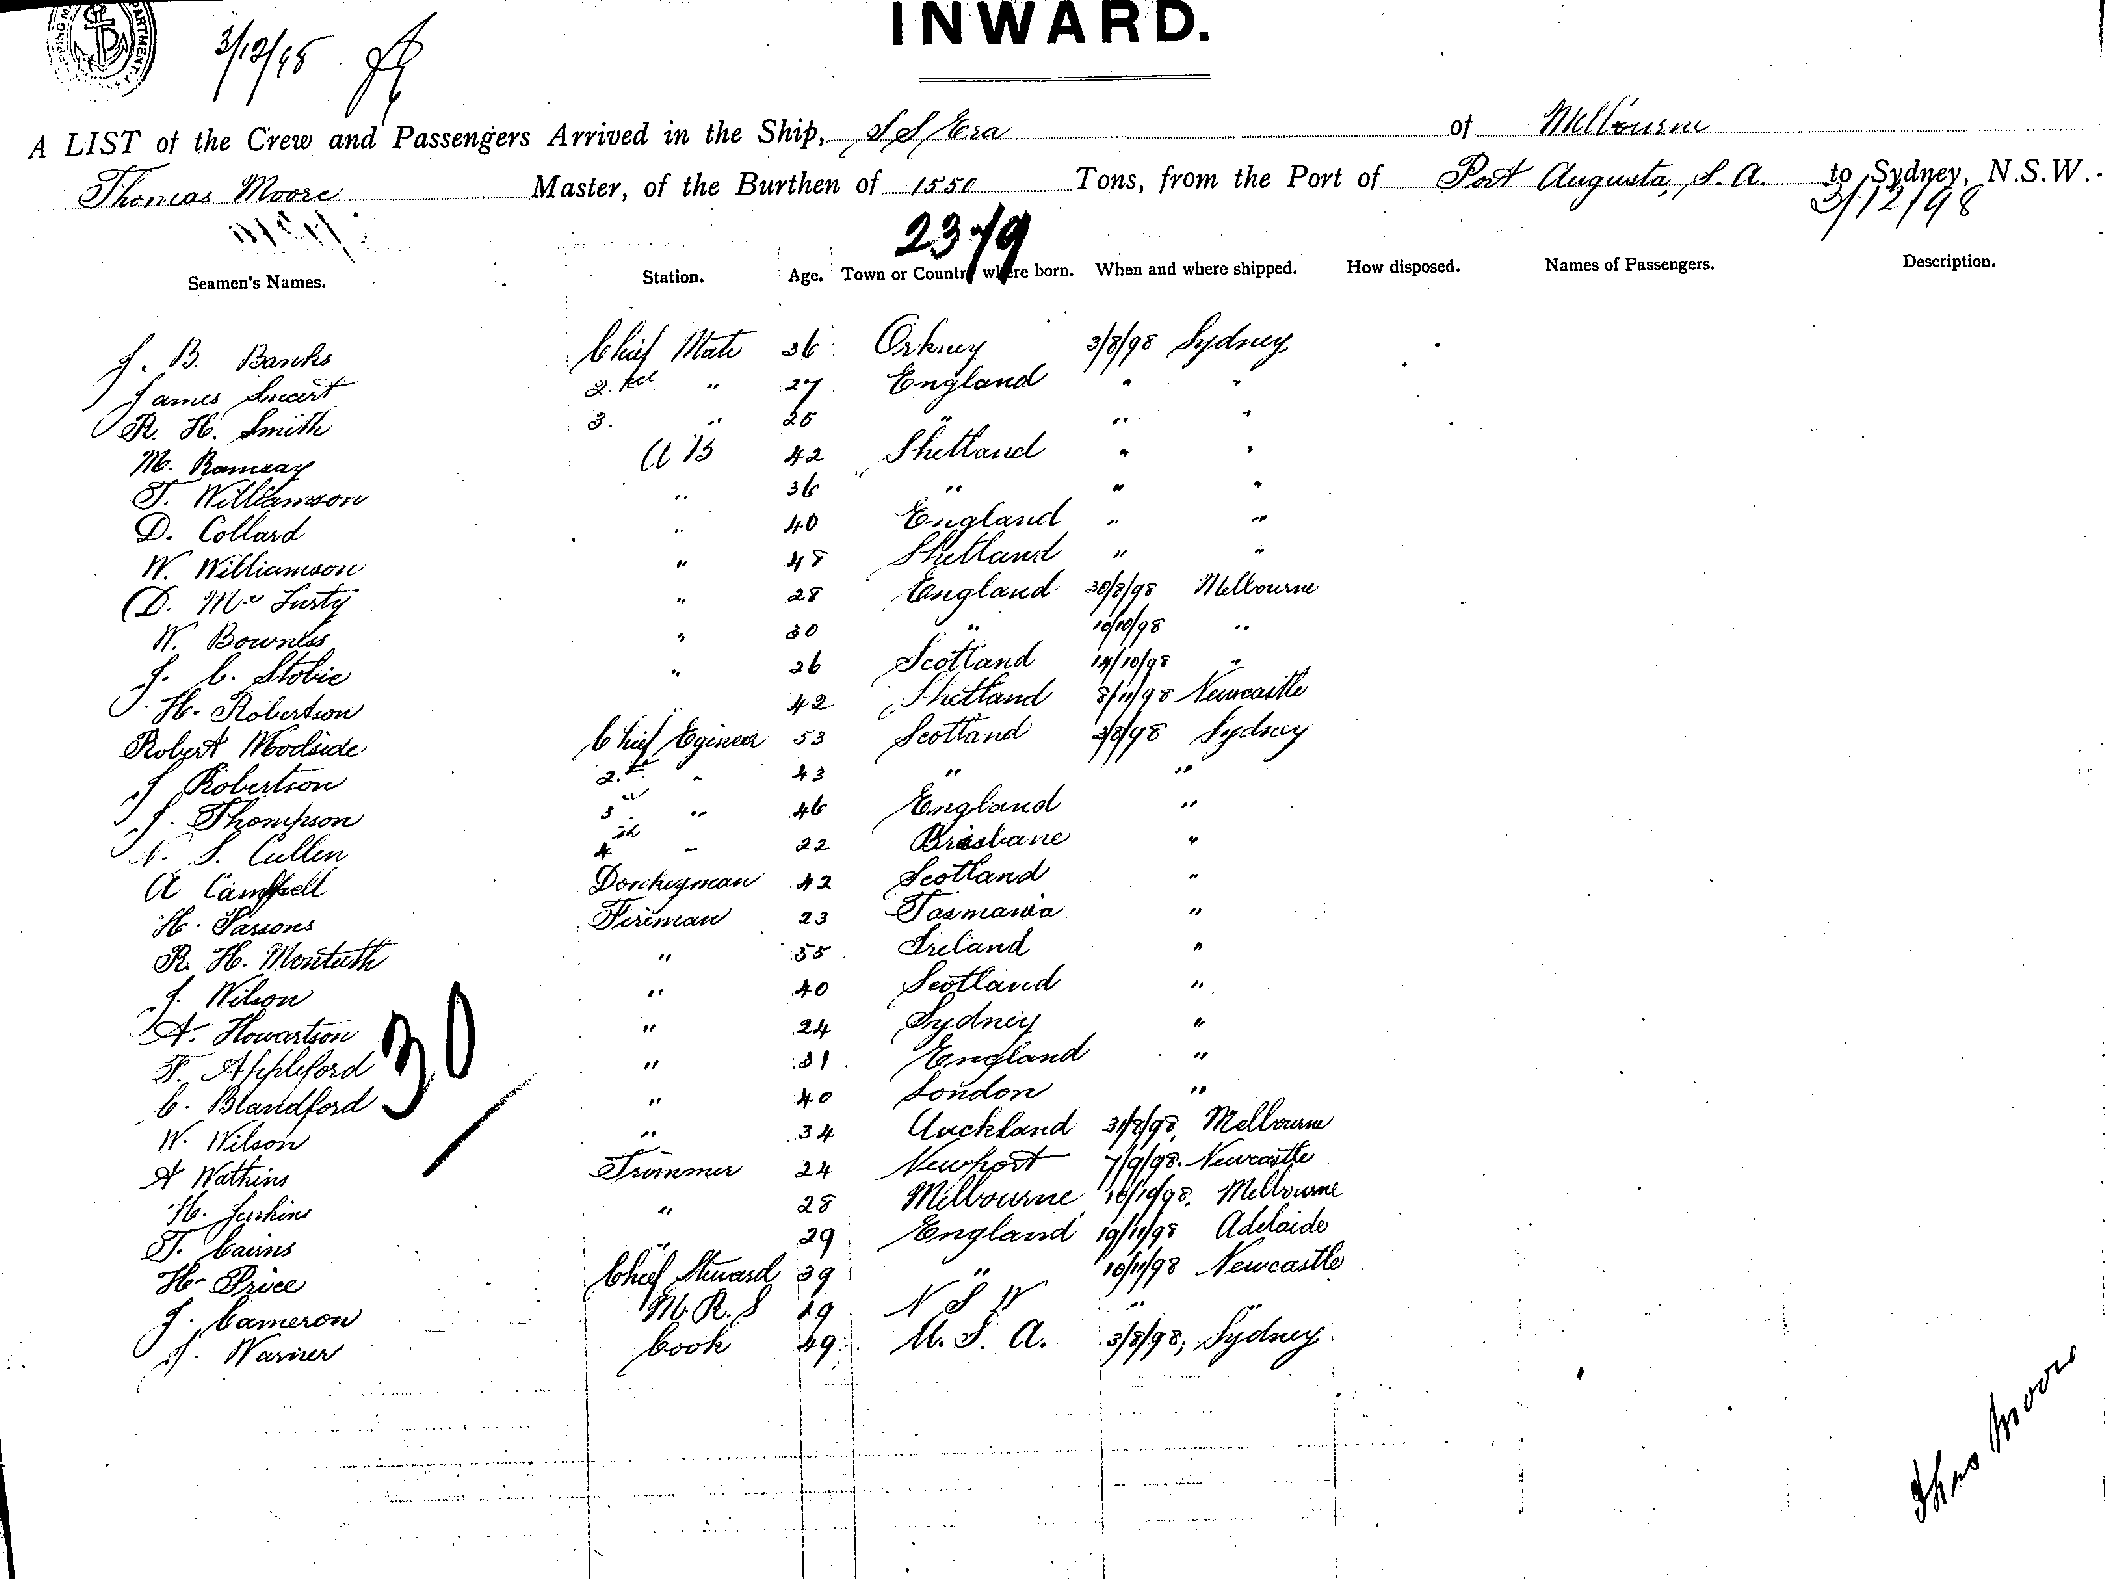 INWARD.
3/12/98
A LIST of the Crew and Passengers Arrived in the Ship, SS Era of Melbourne
Thomas Moore Master, of the Burthen of 1550 Tons, from the Port of Port Augusta, S. A. to Sydney, N.S.W.
3/12/98
23 / 9
Seamen's Names. Station. Age. Town or Country where born. When and where shipped. How disposed. Names of Passengers. Description.
J. B. Banks Chief Mate 36 Orkney 3/8/98 Sydney
James Smart 2nd " 27 England " "
R. H. Smith 3. " 25 " " "
M. Ramsay A B 42 Shetland " "
T. Williamson " 36 " " "
D. Collard " 40 England " "
W. Williamson " 48 Shetland " "
D. Mc Lusty " 28 England 30/8/98 Melbourne
W. Bowness " 30 " 10/10/98 "
J. C. Stobie " 26 Scotland 14/10/98 "
H. Robertson 42 Shetland 8/11/98 Newcastle
Robert Woodside Chief Egineer 53 Scotland 3/8/98 Sydney
J Robertson 2nd " 43 " "
J. Thompson 3 " 46 England "
N. S. Cullen 4th " 22 Brisbane "
A Campbell Donkeyman 42 Scotland "
H. Parsons Fireman 23 Tasmania "
R. H. Monteith " 55 Ireland "
J. Wilson " 40 Scotland "
A. Howartson " 24 Sydney "
F. Appleford " 31 England "
C. Blandford " 40 London "
W. Wilson " 34 Auckland 31/8/98, Melbourne
A Watkins Trimmer 24 Newport 7/9/98. Newcastle
H. Jenkins " 28 Melbourne 10/10/98. Melbourne
T. Cairns " 29 England 19/11/98 Adelaide
H. Price Chief Steward 39 " 10/11/98 Newcastle
J. Cameron M. R. S 19 N S W " "
J. Warner Cook 49 U. S. A. 3/8/98, Sydney
30
Thos Moore